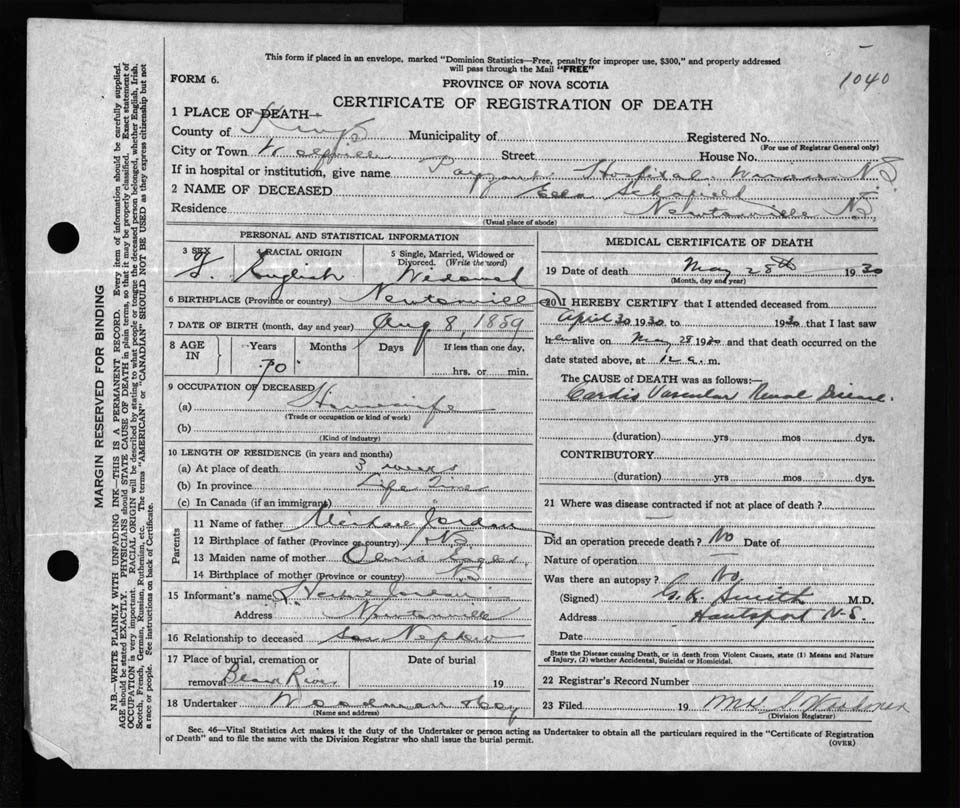 This form if placed in an envelope, marked "Dominion Statistics—Free, penalty for improper use, $300," and properly addressed
will pass through the Mail "FREE"
1040
FORM 6.
PROVINCE OF NOVA SCOTIA
CERTIFICATE OF REGISTRATION OF DEATH
1 PLACE OF DEATH
County of Kings Municipality of Registered No.
(For use of Registrar General only)
City or Town Wolfville Street House No.
If in hospital or institution, give name Payzant Hospital NS
2 NAME OF DECEASED Ella Schofield
Residence Newtonville NS.
(Usual place of abode)
PERSONAL AND STATISTICAL INFORMATION
3 SEX 4 RACIAL ORIGIN 5 Single, Married, Widowed or Divorced. (Write the word)
F. English Widowed
6 BIRTHPLACE (Province or country) Newtonville
7 DATE OF BIRTH (month, day and year) Aug 8, 1859
8 AGE IN Years Months Days If less than one day,
70 hrs. or min.
9 OCCUPATION OF DECEASED
(a) Housewife
(Trade or occupation or kind of work)
(b)
(Kind of industry)
10 LENGTH OF RESIDENCE (in years and months)
(a) At place of death 3 weeks
(b) In province Life Time
(c) In Canada (if an immigrant)
Parents
11 Name of father Michael Jordan
12 Birthplace of father (Province or country) NS
13 Maiden name of mother
14 Birthplace of mother (Province or country) NS
15 Informant's name Jordan
Address Newtonville
16 Relationship to deceased Nephew
17 Place of burial, cremation or Date of burial
removal Black River 19
18 Undertaker Woodman
(Name and address)
MEDICAL CERTIFICATE OF DEATH
19 Date of death May 28th 1930
(Month, day and year)
20 I HEREBY CERTIFY that I attended deceased from
April 30 1930 to 1930 that I last saw
her alive on May 28 1930 and that death occurred on the
date stated above, at 12 a. m.
The CAUSE OF DEATH was as follows:
Cardio Vascular Renal Disease.
(duration) yrs mos dys.
CONTRIBUTORY
(duration) yrs mos dys.
21 Where was disease contracted if not at place of death?
Did an operation precede death? No Date of
Nature of operation
Was there an autopsy? No
(Signed) G.K. Smith M.D.
Address Hantsport N-S.
Date
State the Disease causing Death, or in death from Violent Causes, state (1) Means and
Nature of Injury, (2) whether Accidental, Suicidal or Homicidal.
22 Registrar's Record Number
23 Filed 19 Mrs Woodman
(Division Registrar)
Sec. 46—Vital Statistics Act makes it the duty of the Undertaker or Person acting as Undertaker to obtain all the particulars required in the "Certificate of Registration
of Death" and to file the same with the Division Registrar who shall issue the burial permit. (OVER)
MARGIN RESERVED FOR BINDING
N.B.—WRITE PLAINLY WITH UNFADING INK—THIS IS A PERMANENT RECORD. Every item of information should be carefully supplied.
AGE should be stated EXACTLY. PHYSICIANS should STATE CAUSE OF DEATH in plain terms, so that it may be properly classified. Exact statement of
OCCUPATION is very important. RACIAL ORIGIN will be described by stating to what people or tongue the deceased person belonged, whether English, Irish,
Scotch, French, German, Russian, Ruthenian, etc. The terms "AMERICAN" or "CANADIAN" SHOULD NOT BE USED as they express citizenship but not
a race or people. See instructions on back of Certificate.